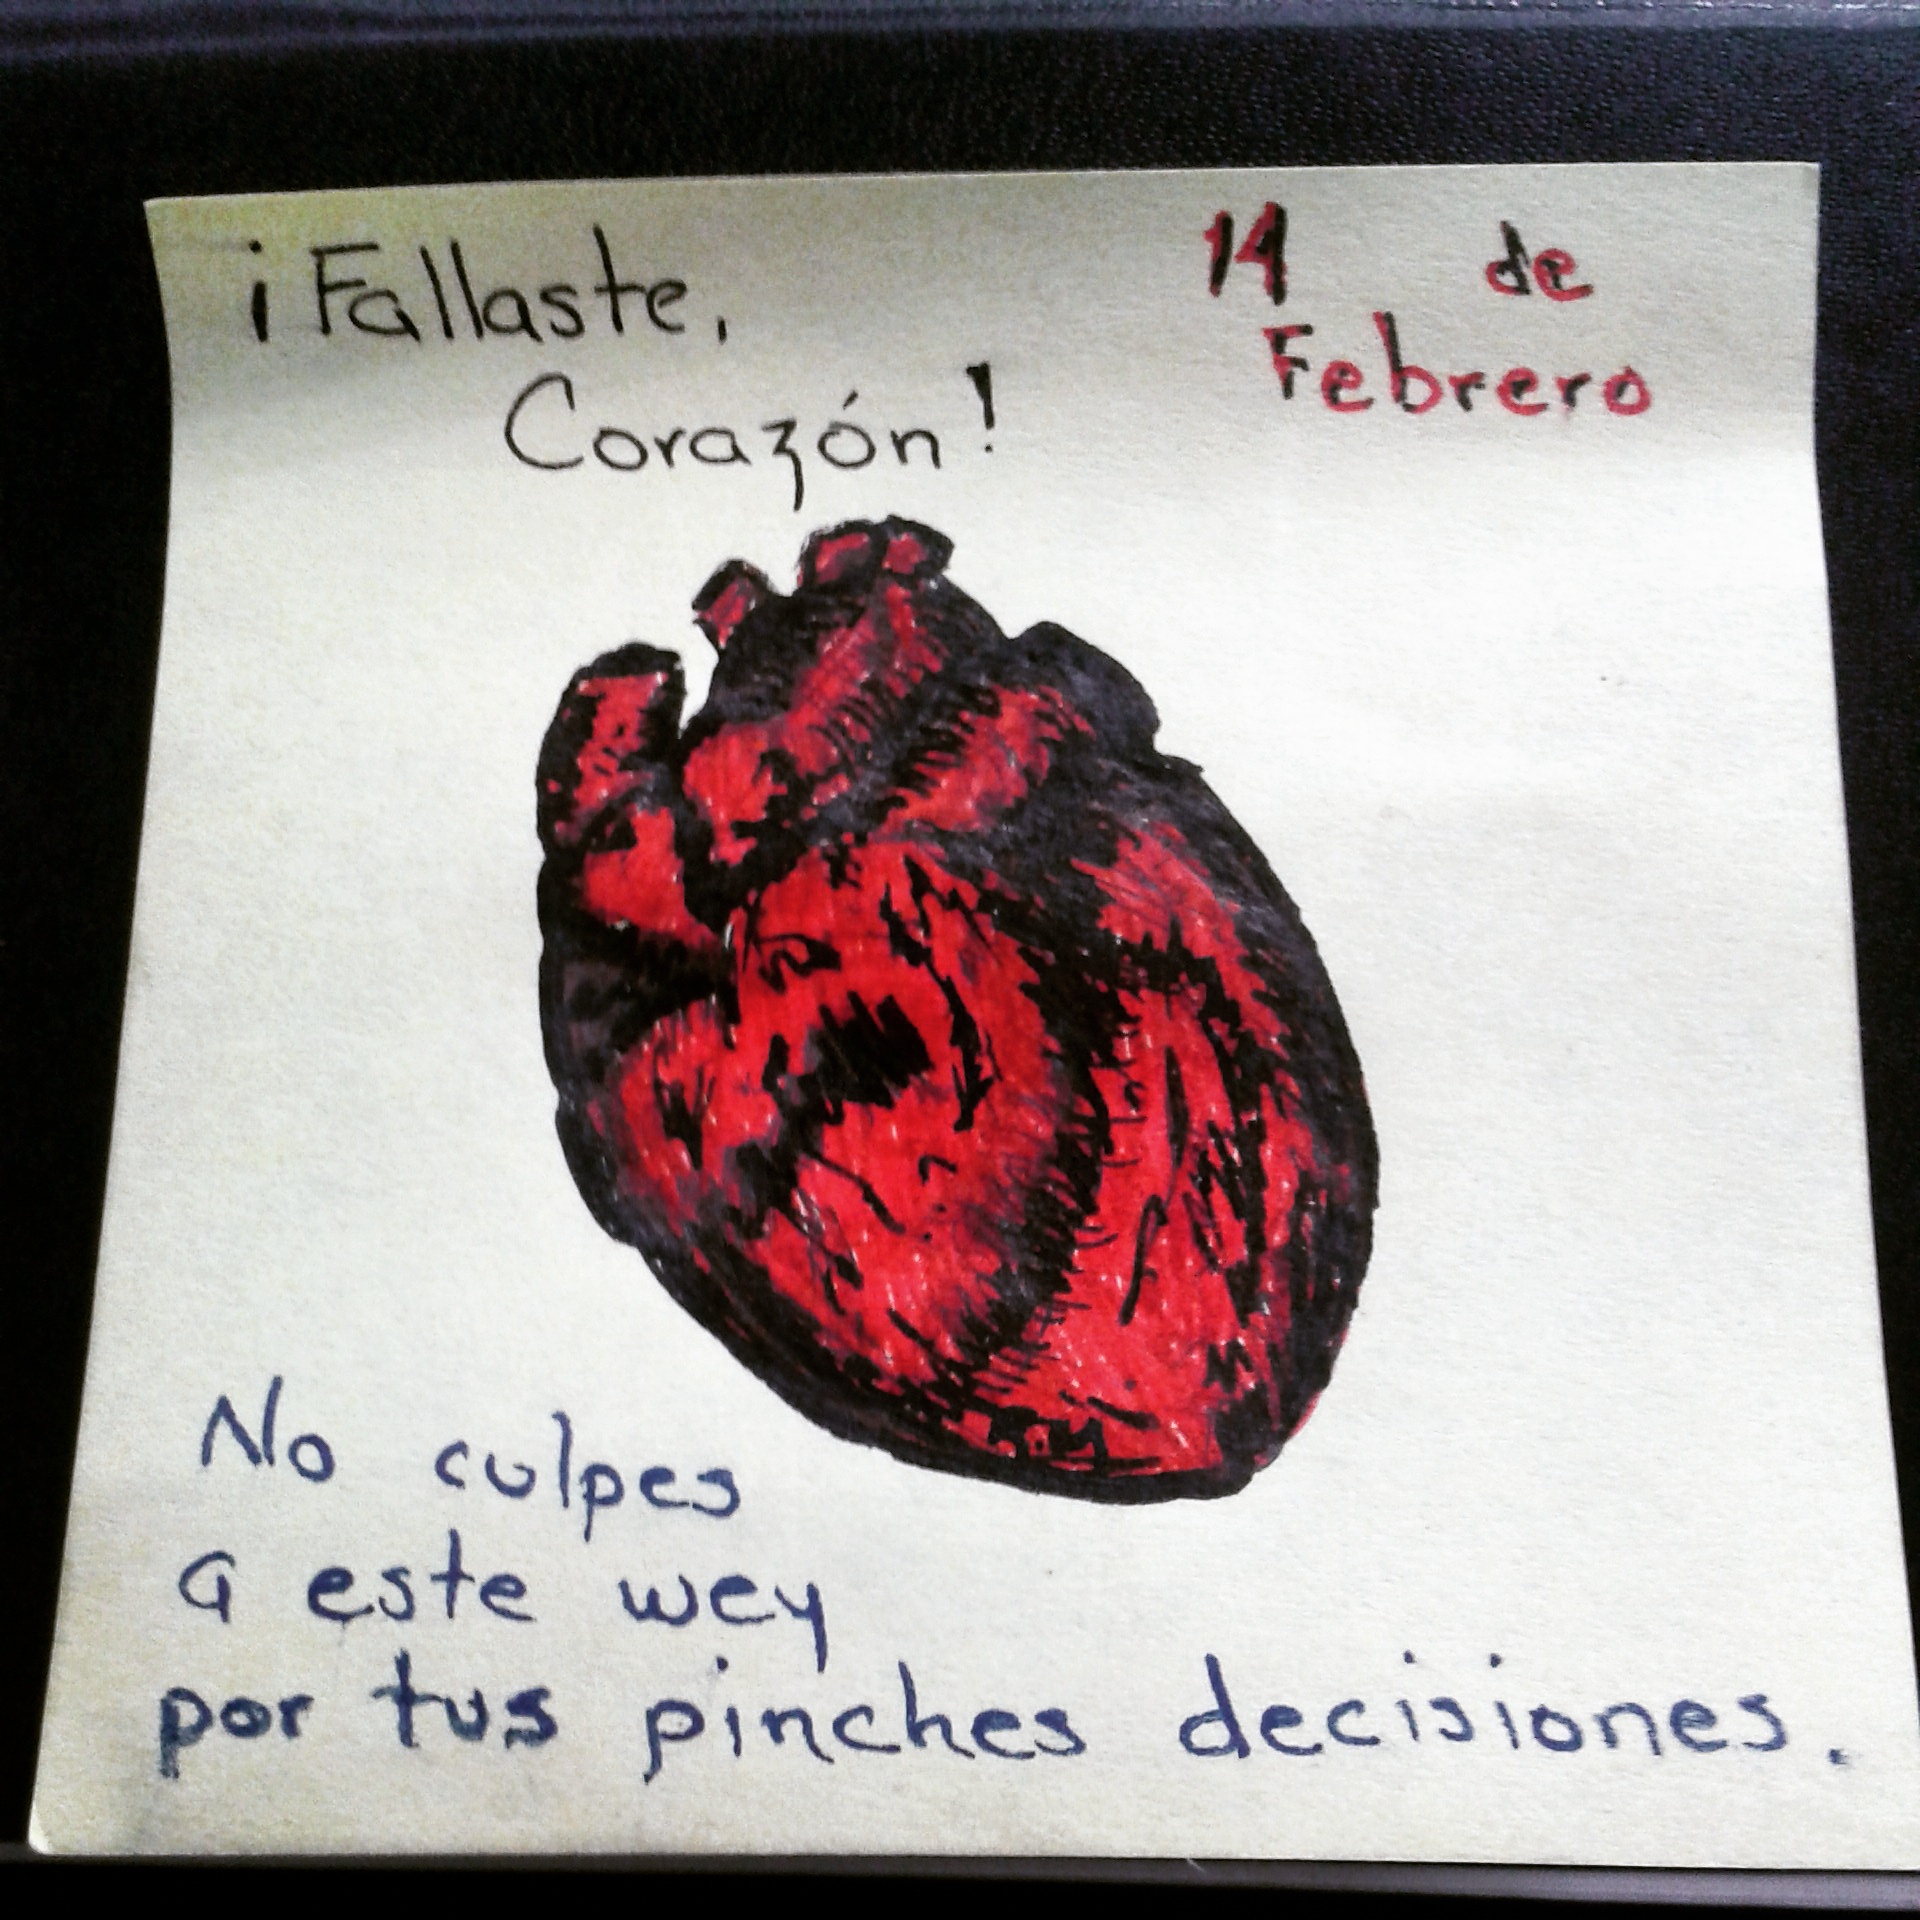 ¡Fallaste,
Corazón!
14 de
Febrero
No culpes
a este wey
por tus pinches decisiones.